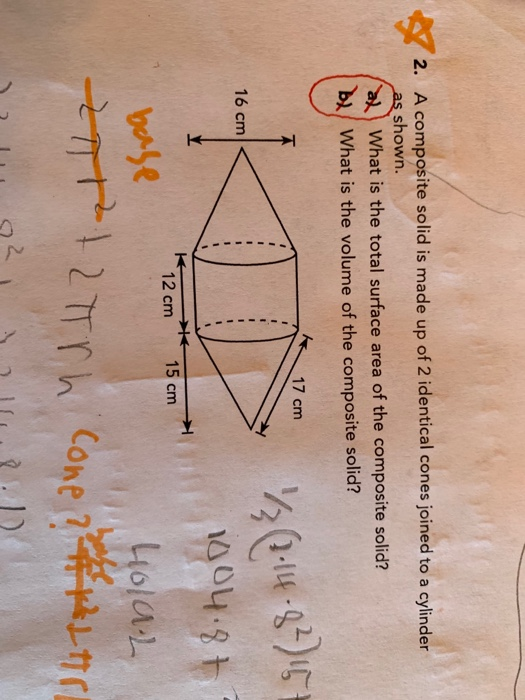 2. A composite solid is made up of 2 identical cones joined to a cylinder
as shown.
a) What is the total surface area of the composite solid?
b) What is the volume of the composite solid?
16 cm
17 cm
12 cm
15 cm
1/3(3.14·8²)15+
1004.8+
4019.2
base
2πr² + 2πrh
Cone?
base